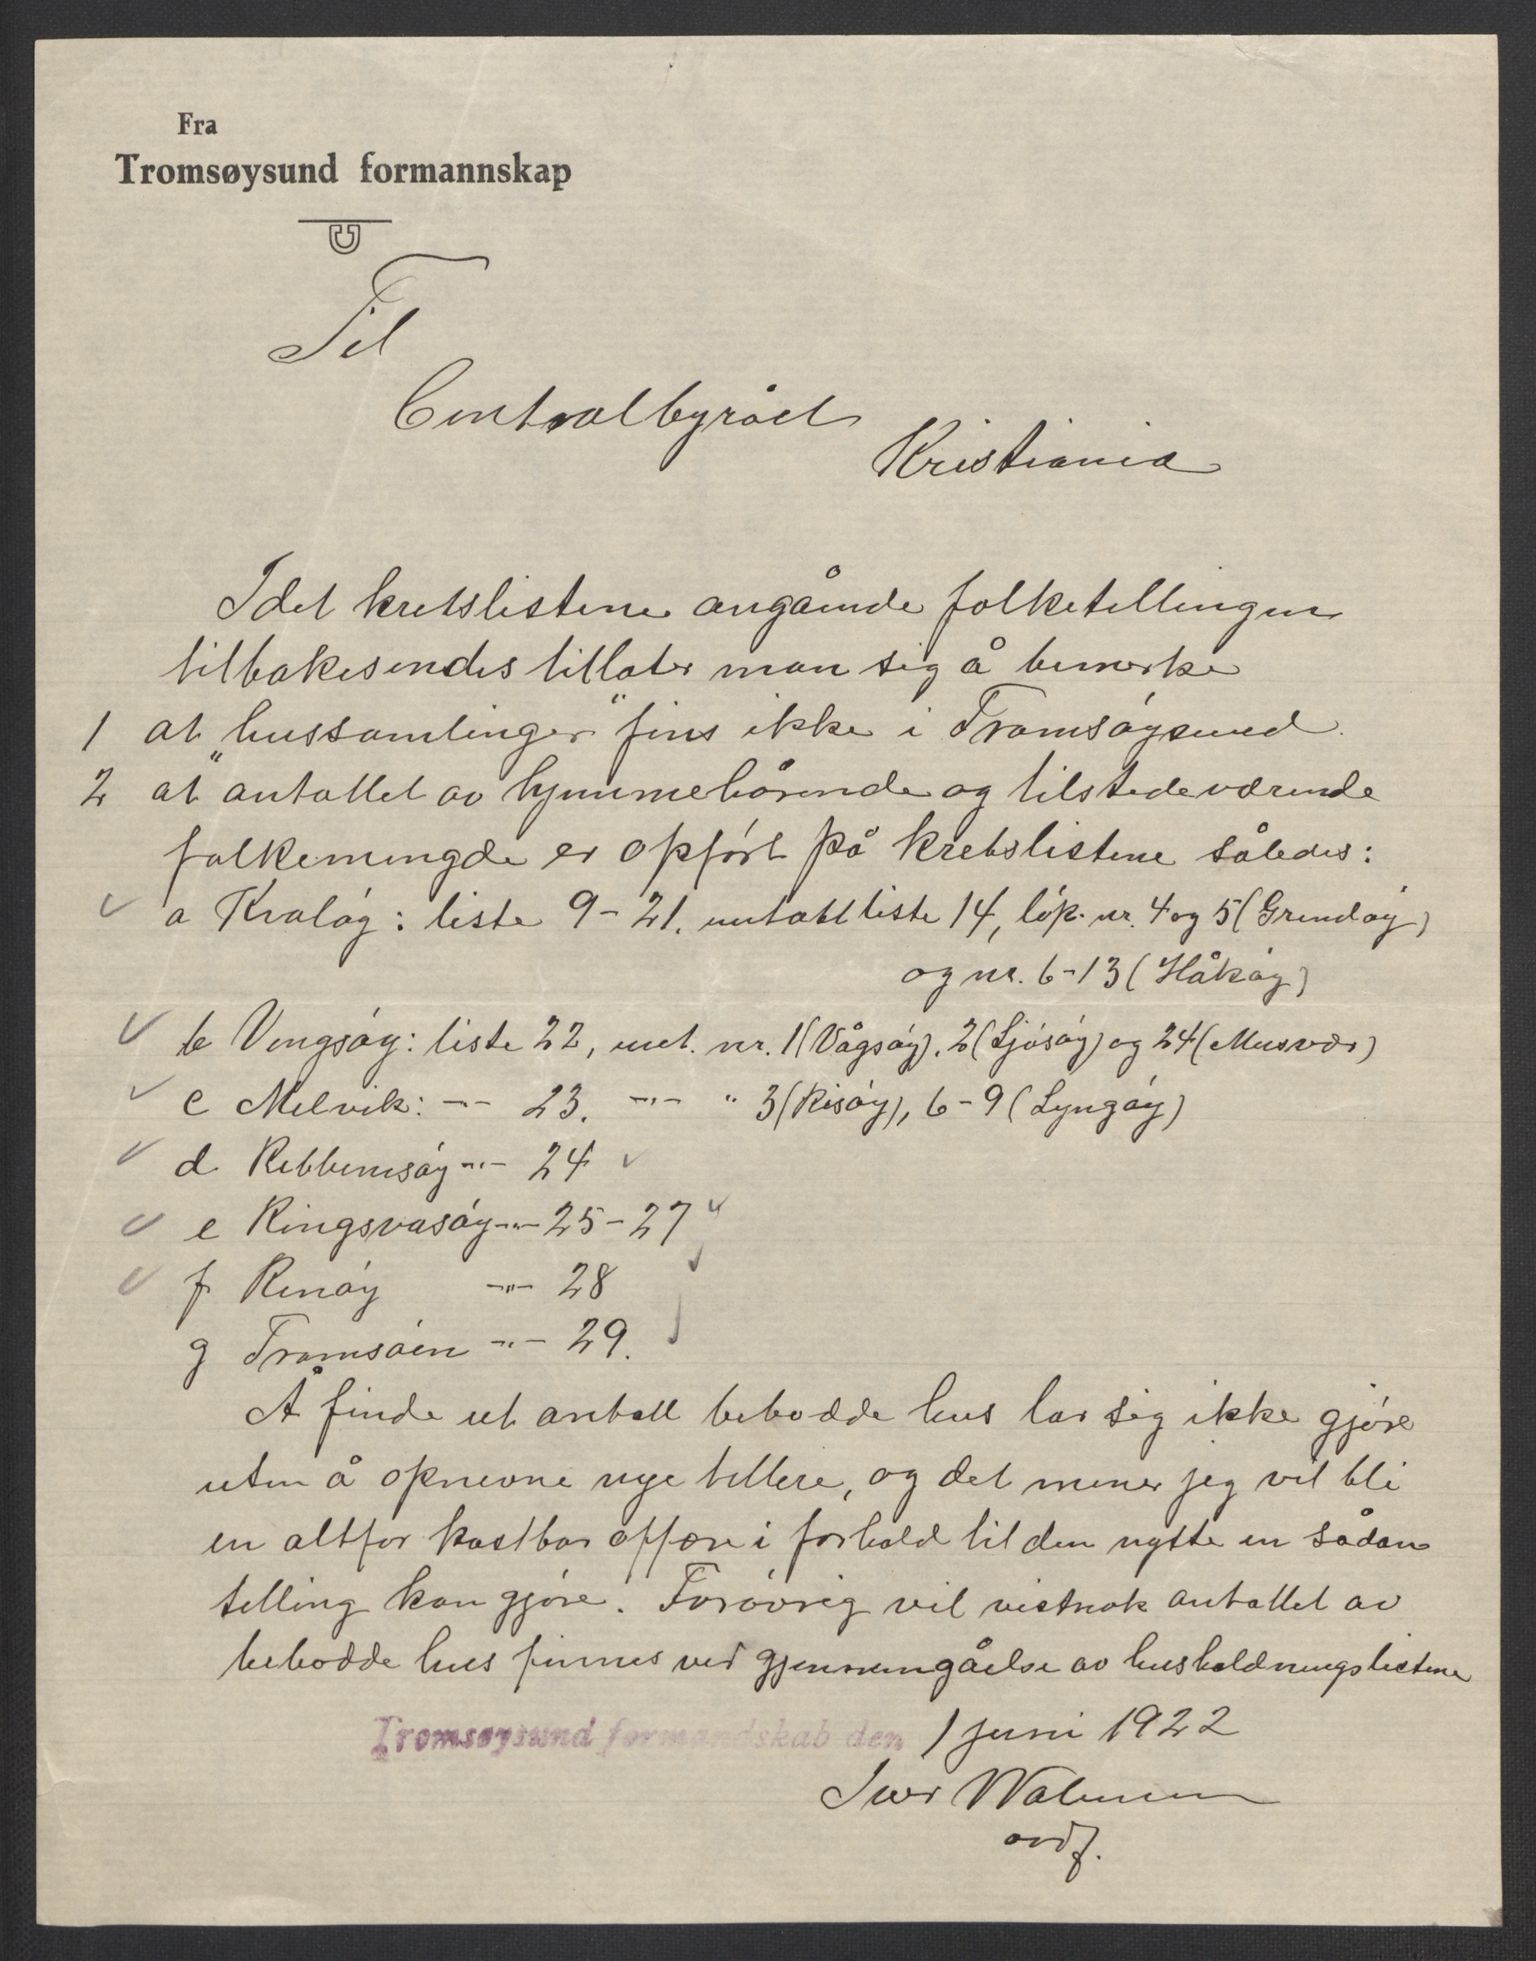 Fra
Tromsøysund formannskap
Til
Centralbyrået
Kristiania
Idet kretslistene angående folketellingen
tilbakesendes tillater man sig å bemerke
1 at "hussamlinger" fins ikke i Tromsøysund.
2 at antallet av hjemmehörende og tilstedeværende
folkemengde er opført på kretslistene således:
✓ a Kvaløy: liste 9-21. untatt liste 14, löp. nr. 4 og 5 (Grindøy)
og nr. 6-13 (Håkøy)
✓ b Vengsøy: liste 22, unt. nr. 1 (Vågsøy), 2 (Sjøsøy) og 24 (Musvær)
✓ c Melvik: -"- 23. -"- " 3 (Risøy), 6-9 (Lyngøy)
✓ d Rebbenesøy -"- 24 ✓
✓ e Ringsvasøy -"- 25-27 ✓
✓ f Renøy -"- 28 ✓
g Tromsøen -"- 29.
Å finde ut antall bebodde hus lar sig ikke gjøre
uten å opnevne nye tellere, og det mener jeg vil bli
en altfor kostbar affære i forhold til den nytte en sådan
telling kan gjøre. Forøvrig vil vistnok antallet av
bebodde hus finnes ved gjennemgåelse av husholdningslistene
Tromsøysund formandskab den 1 juni 1922
Iver Walnum
ordf.